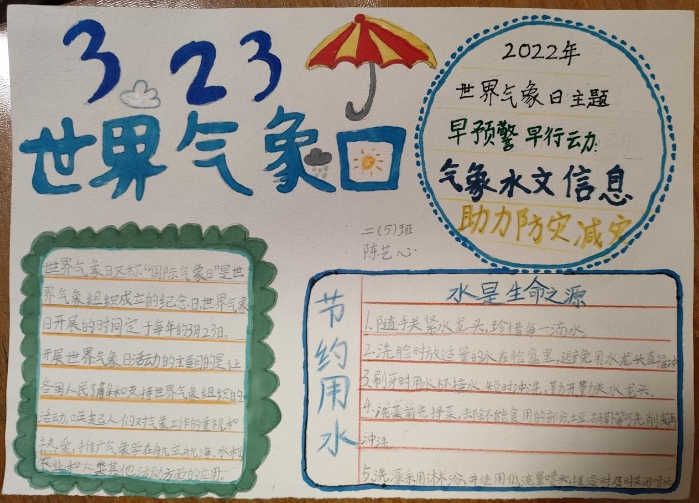 3.23
世界气象日
2022年
世界气象日主题
早预警早行动:
气象水文信息
助力防灾减灾
二(5)班
陈艺心
世界气象日又称“国际气象日”是世
界气象组织成立的纪念日.世界气象
日开展的时间定于每年的3月23日。
开展世界气象日活动的主要目的是让
各国人民了解和支持世界气象组织的
活动,唤起人们对气象工作的重视和
热爱,推广气象学在航空航海、水利
农业和人类其他活动方面的应用.
节约用水
水是生命之源
1.随手关紧水龙头,珍惜每一滴水
2.洗脸时放适量的水在脸盆里,避免用水龙头直接冲
3.刷牙时用水杯接水,短时冲洗,勿开整关水龙头.
4.洗菜前先择菜,去除不能食用的部分,土豆、胡萝卜可先削皮再
冲洗.
5.洗澡采用淋浴,并使用低流量喷头,搓澡时及时关闭喷头